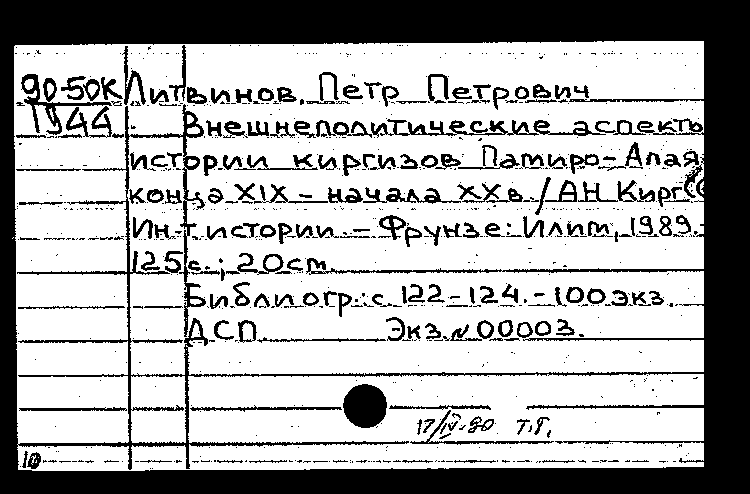 90-50К Литвинов, Петр Петрович
1944 Внешнеполитические аспекты
истории киргизов Памиро-Алая
конца XIX - начала XXв. / АН Кирг
Ин-т истории. - Фрунзе: Илим, 1989. -
125с.; 20см.
Библиогр.: с. 122-124. - 100экз.
ДСП. Экз. № 00003.
17/IV-90 Т.Т.
10